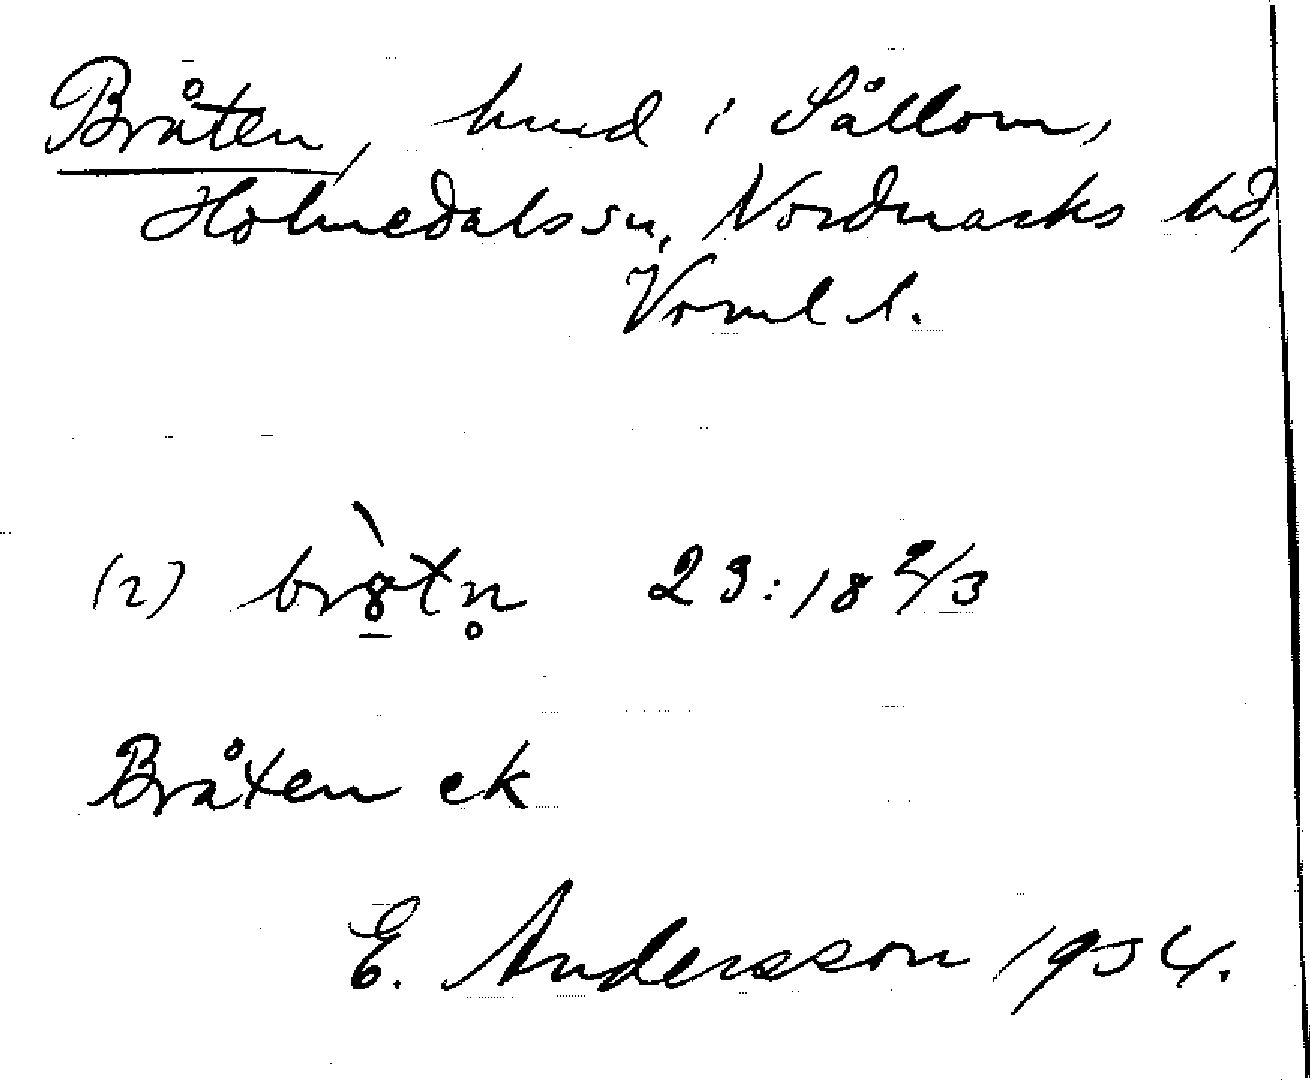 Bråten, hmd i Sållom,
Holmedals sn, Nordmarks hd,
Vrml l.
(2) br8̠̀tn̥ 23:18 2/3
Bråten ek
E. Andersson 1954.